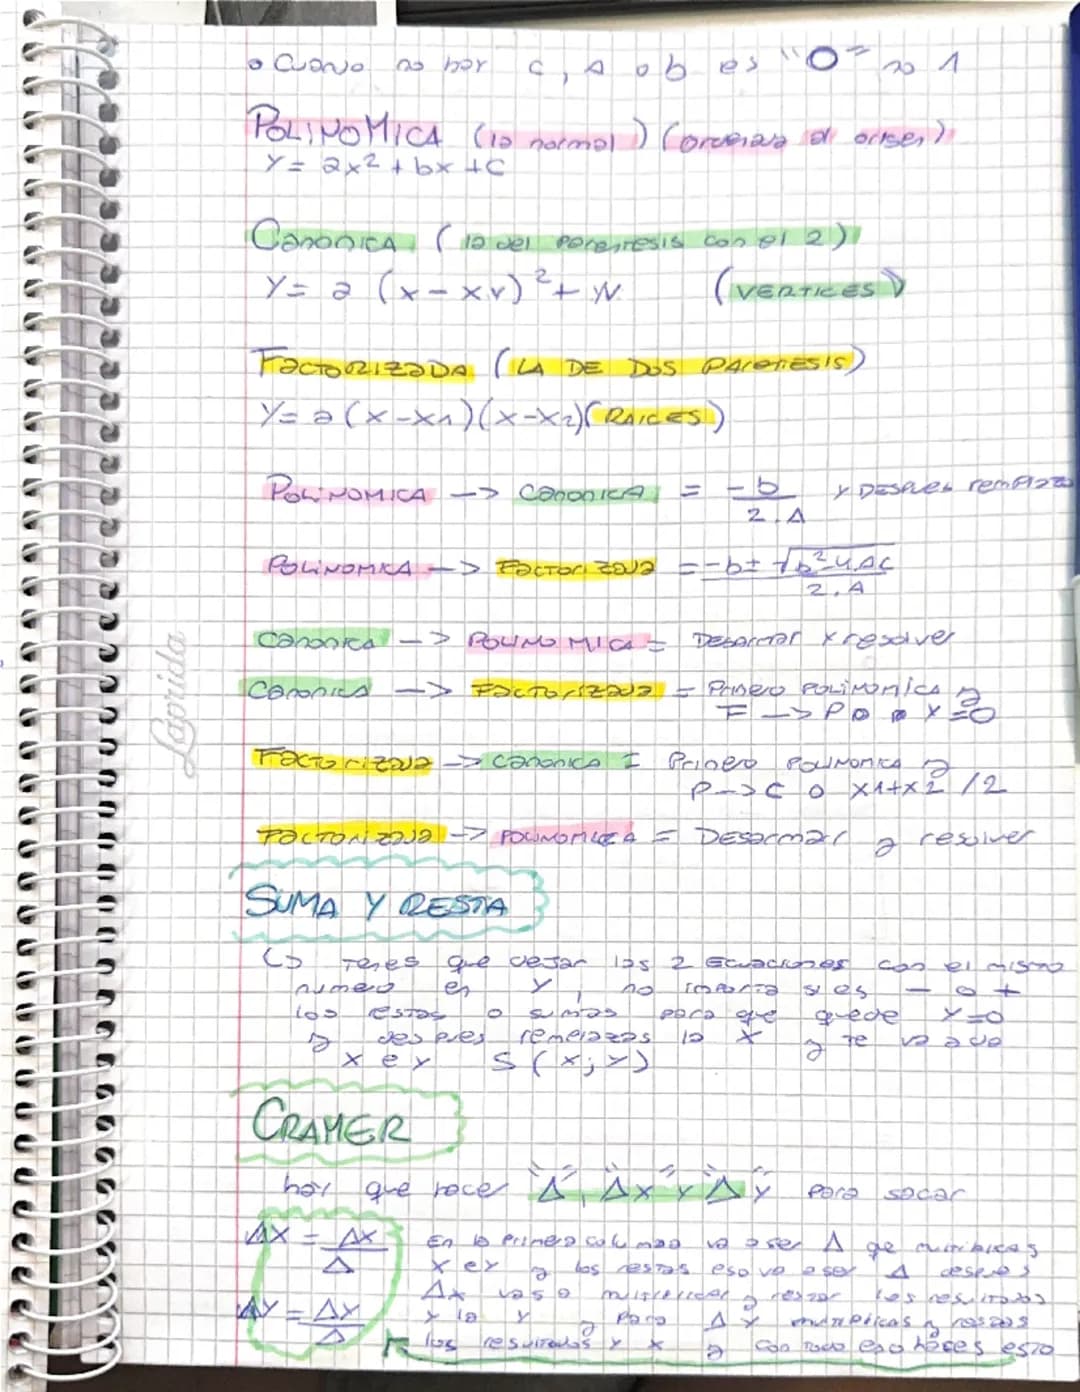 • Cuando no hay c, A o b es "0" no 1
POLINOMICA (la normal) (ordenada al origen)
Y= ax² + bx + C
Canonica (la del parentesis con el 2)
Y= a (x-xv)² + yv (VERTICES)
FactORIZADA (LA DE DOS PArenTESIS)
Y= a (x-x1)(x-x2) (RAICES)
POLINOMICA -> canonica = -b / 2.A y DESPUES remplazas
POLINOMICA -> Factorizada = -b± √b²-4.AC / 2.A
canonica -> POLINOMICA = Desarmar y resolver
canonica -> Factorizada = Primero POLINOMICA y
F -> P o Y=0
Factorizada -> canonica = Primero POLINOMICA y
P->C o x1+x2 /2
Factorizada -> POLINOMICA = Desarmar y resolver
SUMA Y RESTA
↳ Tenes que dejar las 2 Ecuaciones con el mismo
numero en Y, no importa si es - o +
los restas o sumas para que quede Y=0
y despues remplazas la x y te va a da
x e y S (x;y)
CRAMER
hay que hacer "Δ", "Δx" y "Δy" para sacar
ΔX = Δx / Δ
ΔY = Δy / Δ
En la primera columna va a ser Δ que multiplicas
x e y y los restas eso va a ser Δ despues
Δx vas a multiplicar y restar los resultados
y la y y para Δy multiplicas y restas
los resultados y x y con todo eso haces esto
Laprida